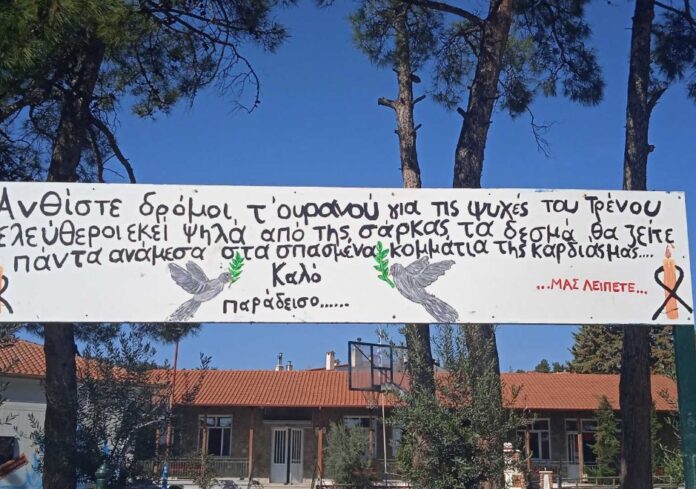 Ανθίστε δρόμοι τ' ουρανού για τις ψυχές του Τρένου
ελεύθεροι εκεί ψηλά από της σάρκας τα δεσμά θα ζείτε
πάντα ανάμεσα στα σπασμένα κομμάτια της καρδιάς μας....
Καλό
παράδεισο......
...ΜΑΣ ΛΕΙΠΕΤΕ...